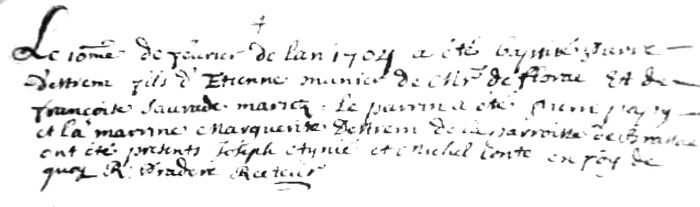 Le 10me de février de lan 1704 a été baptisé pierre
Destrem fils d'Etienne munier de Mr de florac Et de
françoise Sauvade mariez. Le parrin a été pierre
et la marrine Marguerite Destrem de la parroisse de
ont été présents Joseph et Michel Conte en foy de
quoy R. Pradere Recteur